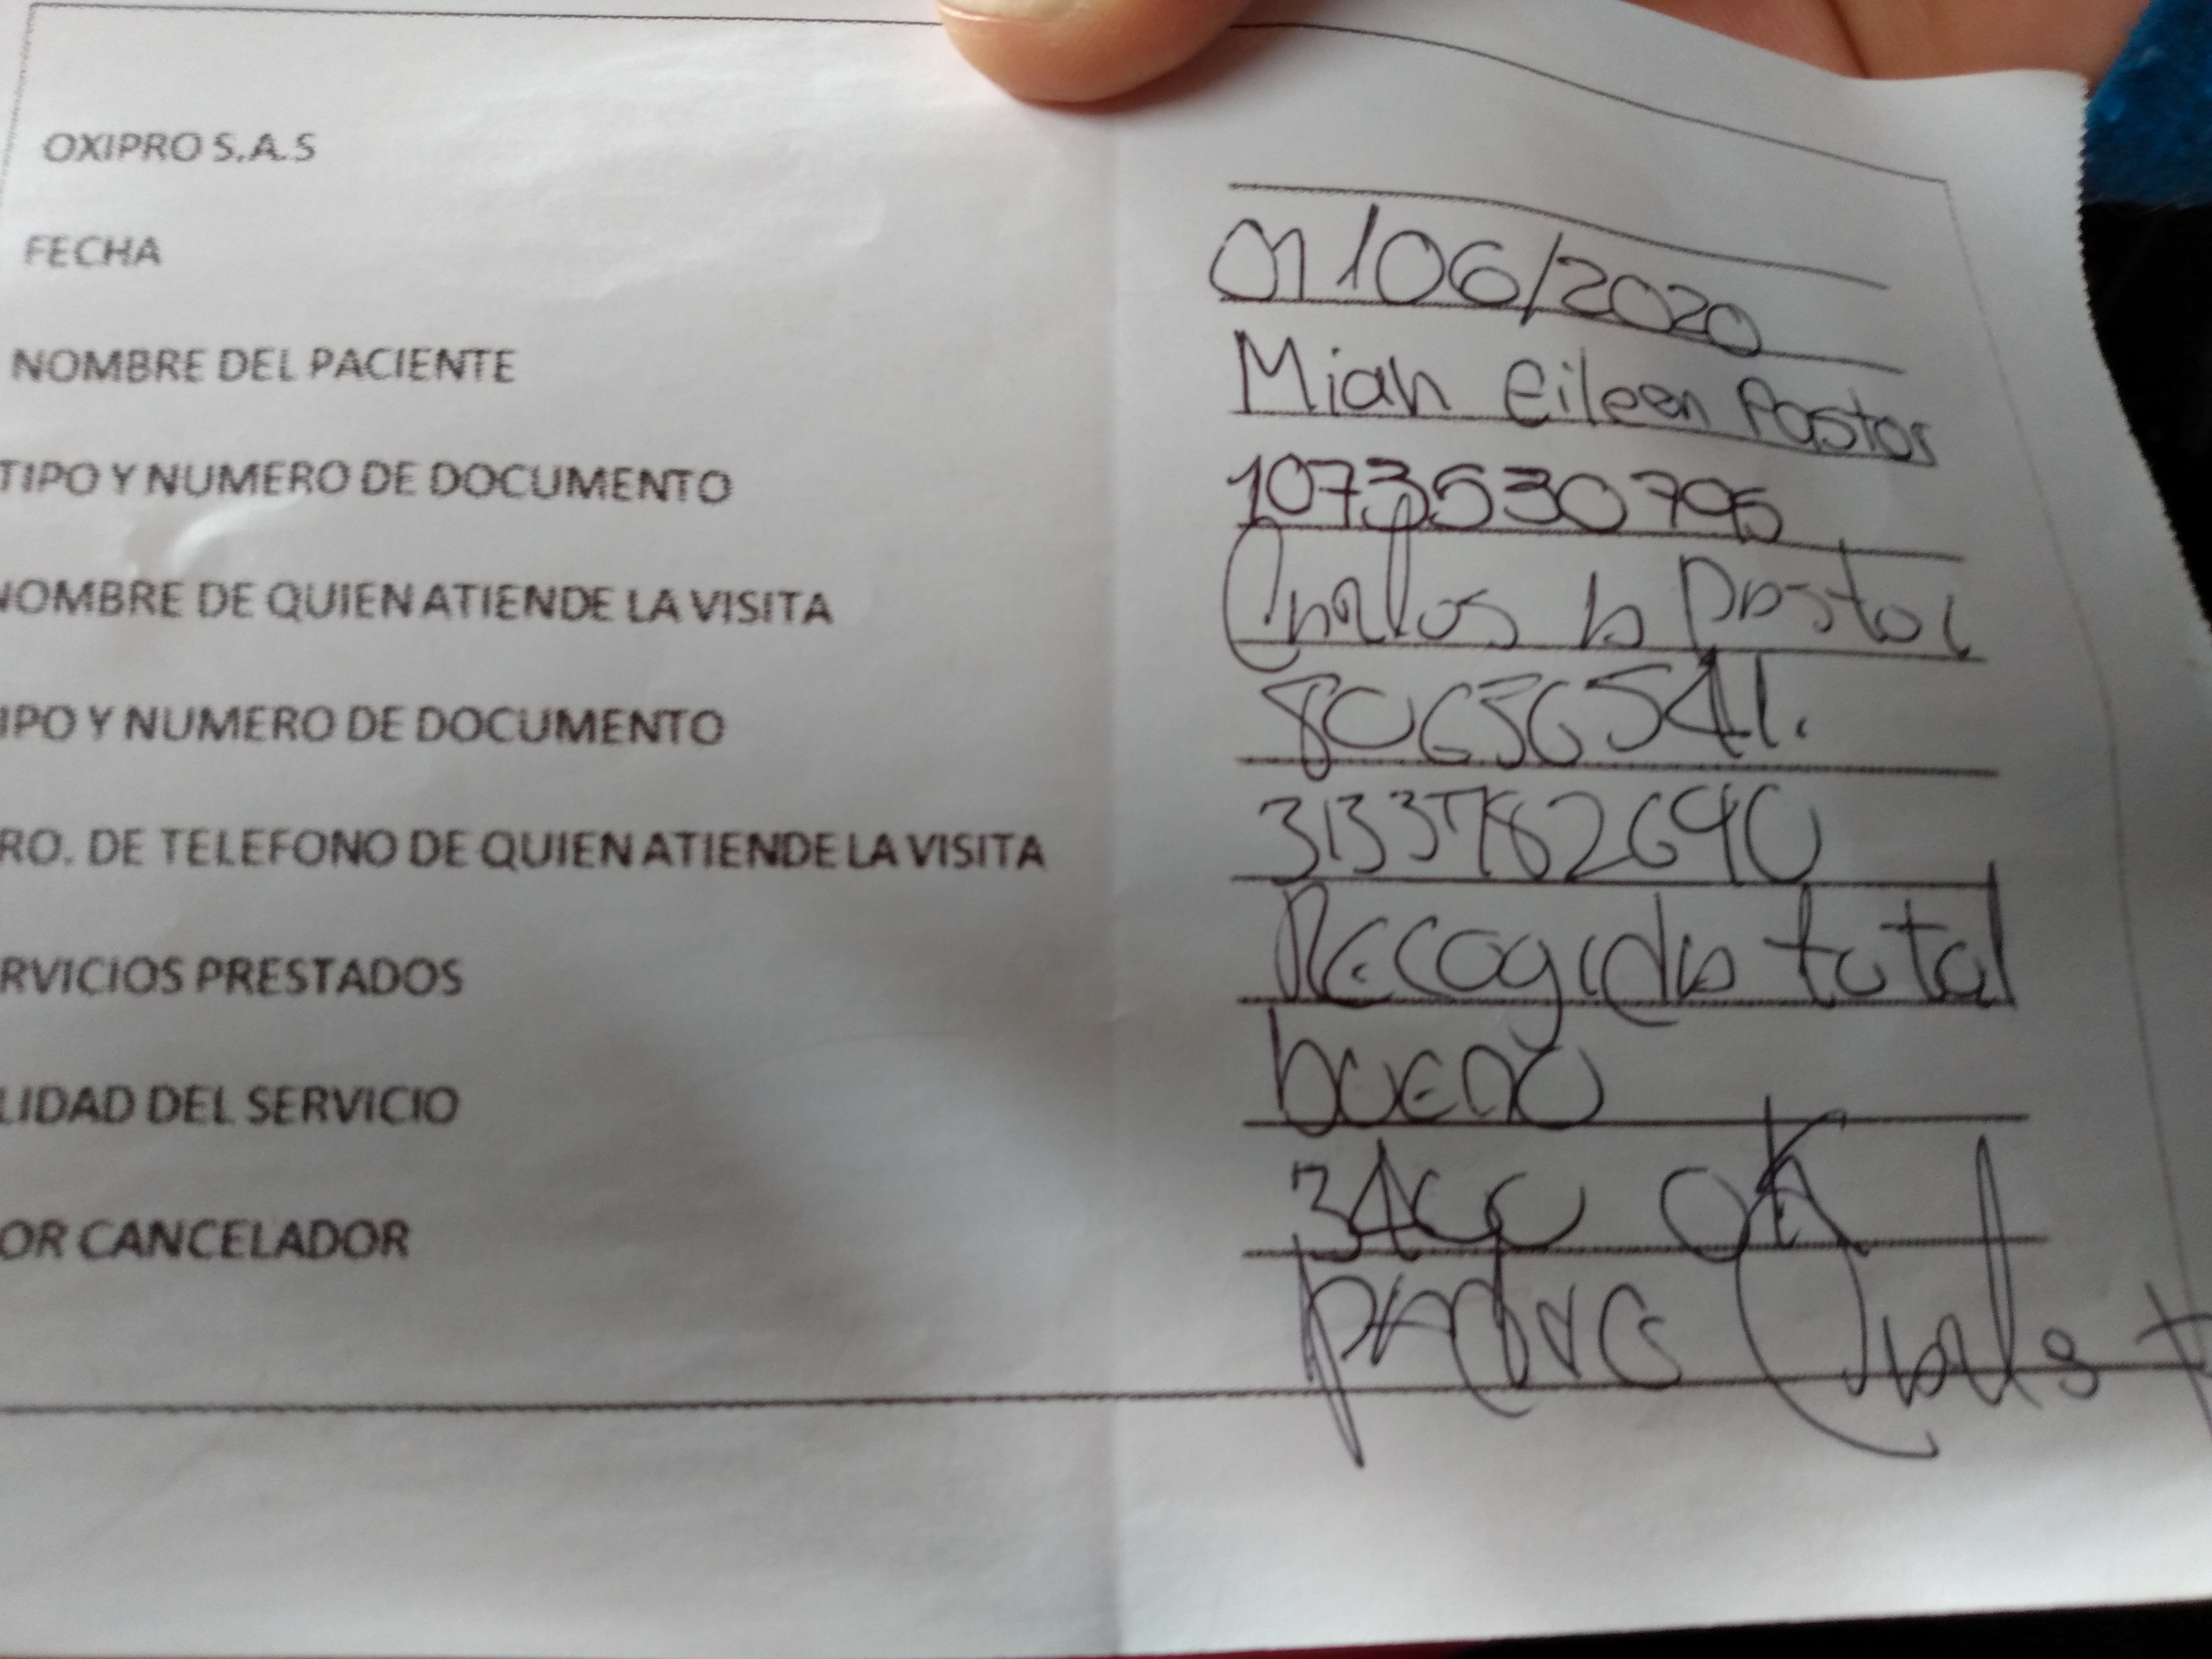 OXIPRO S.A.S
FECHA 01/06/2020
NOMBRE DEL PACIENTE Miah Eileen Pastor
TIPO Y NUMERO DE DOCUMENTO 1073530795
NOMBRE DE QUIEN ATIENDE LA VISITA Carlos A Pastor
IPO Y NUMERO DE DOCUMENTO 80636541.
RO. DE TELEFONO DE QUIEN ATIENDE LA VISITA 3133782690
RVICIOS PRESTADOS Recogida total
LIDAD DEL SERVICIO bueno
OR CANCELADOR OK
padre Carlos